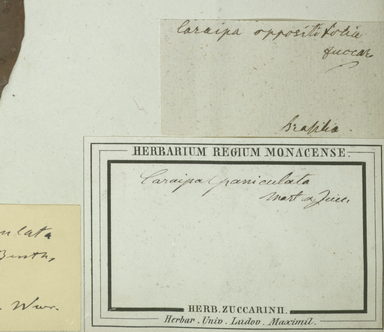 Caraipa oppositifolia
Zuccar.
Brasilia.
HERBARIUM REGIUM MONACENSE.
Caraipa paniculata
Mart. & Zucc.
HERB. ZUCCARINII.
Herbar. Univ. Ludov. Maximil.
Benth.